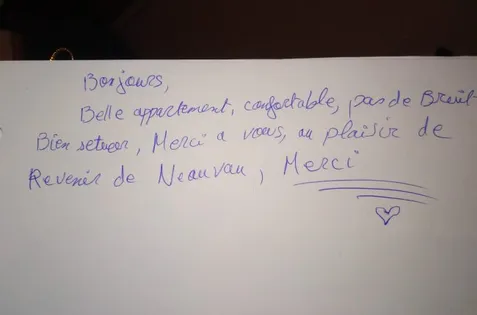 Bonjours,
Belle appartement, confortable, pas de Breuit
Bien setuer, Merci a vous, au plaisir de
Revenir de Neauvau, Merci